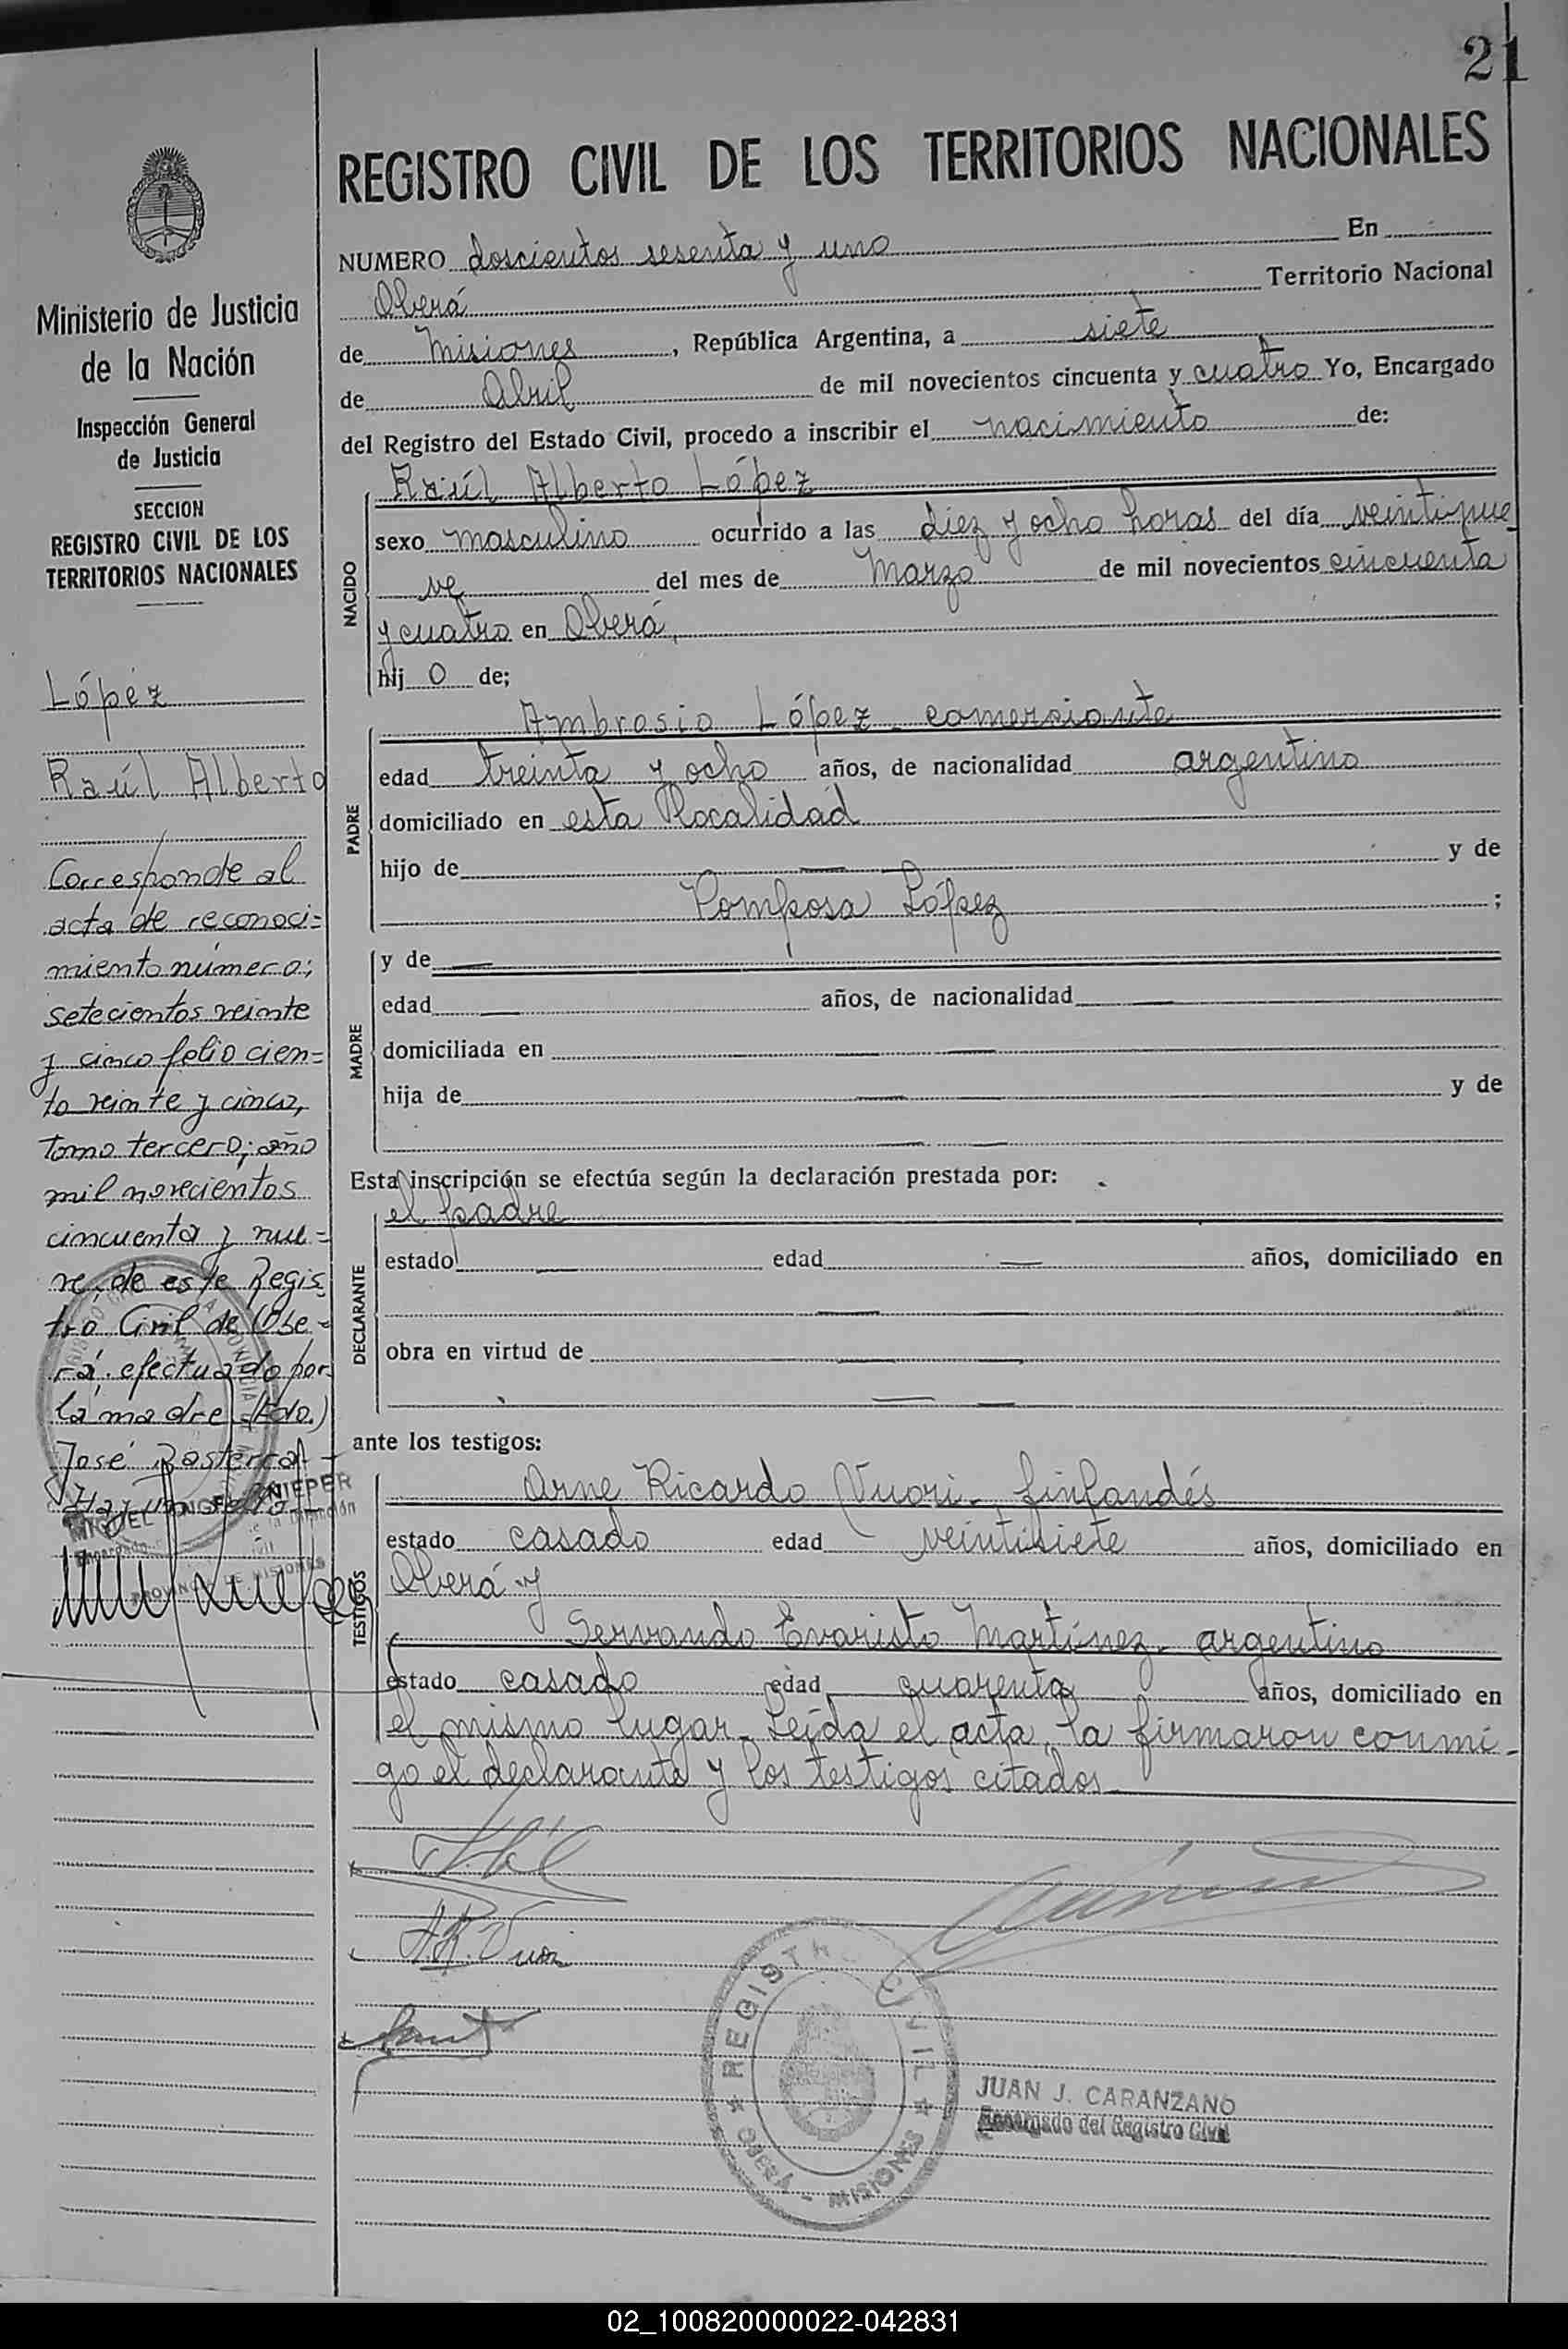 21
REGISTRO CIVIL DE LOS TERRITORIOS NACIONALES
Ministerio de Justicia
de la Nación
Inspección General
de Justicia
SECCION
REGISTRO CIVIL DE LOS
TERRITORIOS NACIONALES
López
Raúl Alberto
Corresponde al
acta de reconoci=
miento número;
setecientos veinte
y cinco folio cien=
to veinte y cinco,
Tomo tercero; año
mil novecientos
cincuenta y nue=
ve, de este Regis
tro Civil de Obe=
rá. efectuado por
la madre
José
MIGUEL ANGEL KNIEPER
Encargado
PROVINCIA DE MISIONES
NUMERO doscientos sesenta y uno En
Oberá Territorio Nacional
de Misiones, República Argentina, a siete
de Abril de mil novecientos cincuenta y cuatro Yo, Encargado
del Registro del Estado Civil, procedo a inscribir el nacimiento de:
NACIDO
Raúl Alberto López
sexo masculino ocurrido a las diez y ocho horas del día veintinue
ve del mes de Marzo de mil novecientos cincuenta
y cuatro en Oberá,
hij o de;
PADRE
Ambrosio López - comerciante
edad treinta y ocho años, de nacionalidad argentino
domiciliado en esta localidad
hijo de — y de
Pomposa López ;
MADRE
y de —
edad — años, de nacionalidad —
domiciliada en —
hija de — y de
—
Esta inscripción se efectúa según la declaración prestada por:
DECLARANTE
el padre
estado — edad — años, domiciliado en
—
obra en virtud de —
—
ante los testigos:
TESTIGOS
Arne Ricardo Vuori - finlandés
estado casado edad veintisiete años, domiciliado en
Oberá y
Servando Evaristo Martínez - argentino
estado casado edad cuarenta años, domiciliado en
el mismo lugar. Leída el acta, la firmaron conmi-
go el declarante y los testigos citados
REGISTRO CIVIL
OBERÁ - MISIONES
JUAN J. CARANZANO
Encargado del Registro Civil
02_100820000022-042831